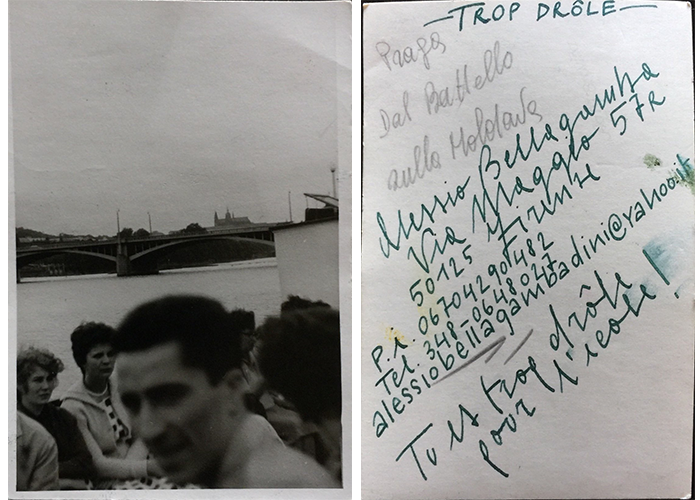 — TROP DRÔLE —
Praga
Dal Battello
sulla Moldava
Alessio Bellagamba
Via Maggio 57R
50125 Firenze
P.I. 06704290482
Tel. 348-0648047
alessiobellagambadini@yahoo.it
Tu es trop drôle
pour l'école!